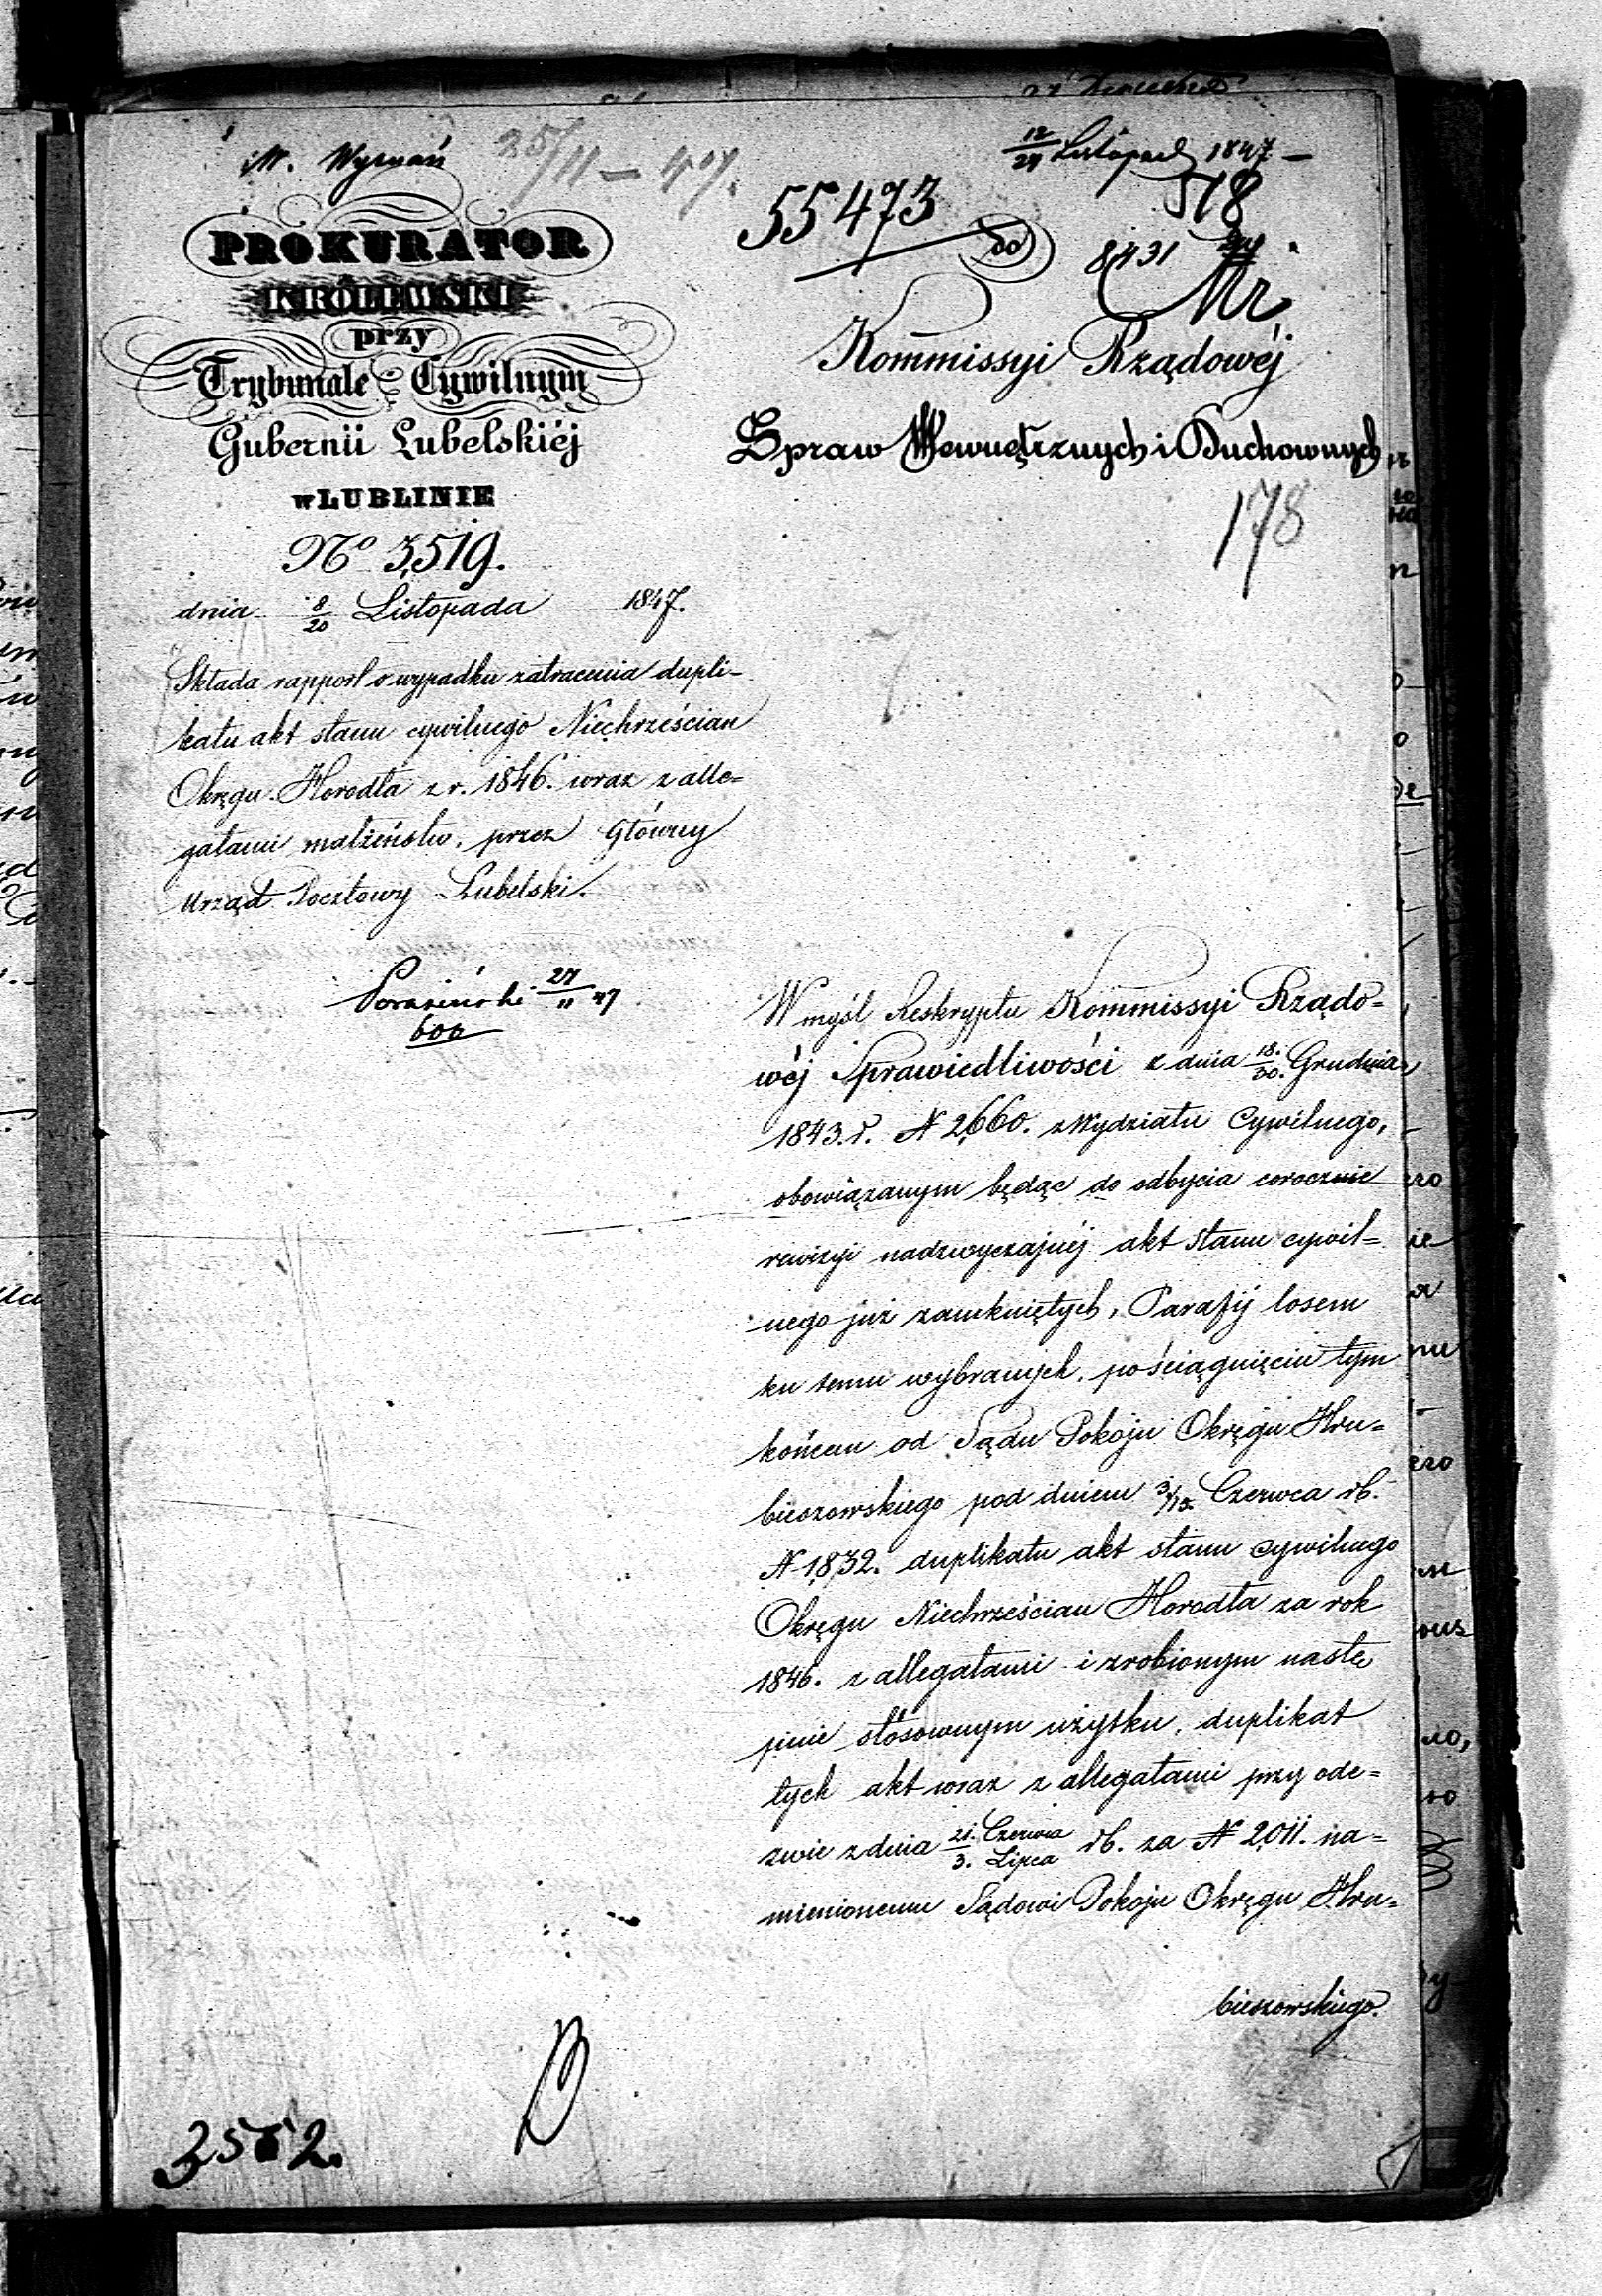 W. Wyznań
25/11 — 47.
12/24 Listopad 1847 —
55473
578
8431
PROKURATOR
KRÓLEWSKI
przy
Trybunale Cywilnym
Gubernii Lubelskiéj
w LUBLINIE
No 3,519.
dnia 8/20 Listopada 1847.
Składa rapport o wypadku zatracenia dupli-
katu akt stanu cywilnego Niechrześcian
Okręgu Horodła z r. 1846. wraz z alle=
gatami małżeństw, przez Główny
Urząd Pocztowy Lubelski.
27/11 47
606
do
Kommissyi Rządowéj
Spraw Wewnętrznych i Duchownych
178
W myśl Reskryptu Kommissyi Rządo=
wéj Sprawiedliwości z dnia 18./30. Grudnia
1843. r. N 2,660. z Wydziału Cywilnego,
obowiązanym będąc do odbycia corocznie
rewizyi nadzwyczajnéj akt stanu cywil=
nego już zamkniętych, Parafij losem
ku temu wybranych, po ściągnięciu tym
końcem od Sądu Pokoju Okręgu Hru=
bieszowskiego pod dniem 3/15 Czerwca rb.
N 1,832. duplikatu akt stanu cywilnego
Okręgu Niechrześcian Horodła za rok
1846. z allegatami i zrobionym nastę
pnie stósownym użytku, duplikat
tych akt wraz z allegatami przy ode=
zwie z dnia 21. Czerwca/3. Lipca rb. za N 2,011. na=
mienionemu Sądowi Pokoju Okręgu Hru=
bieszowskiego.
3552.